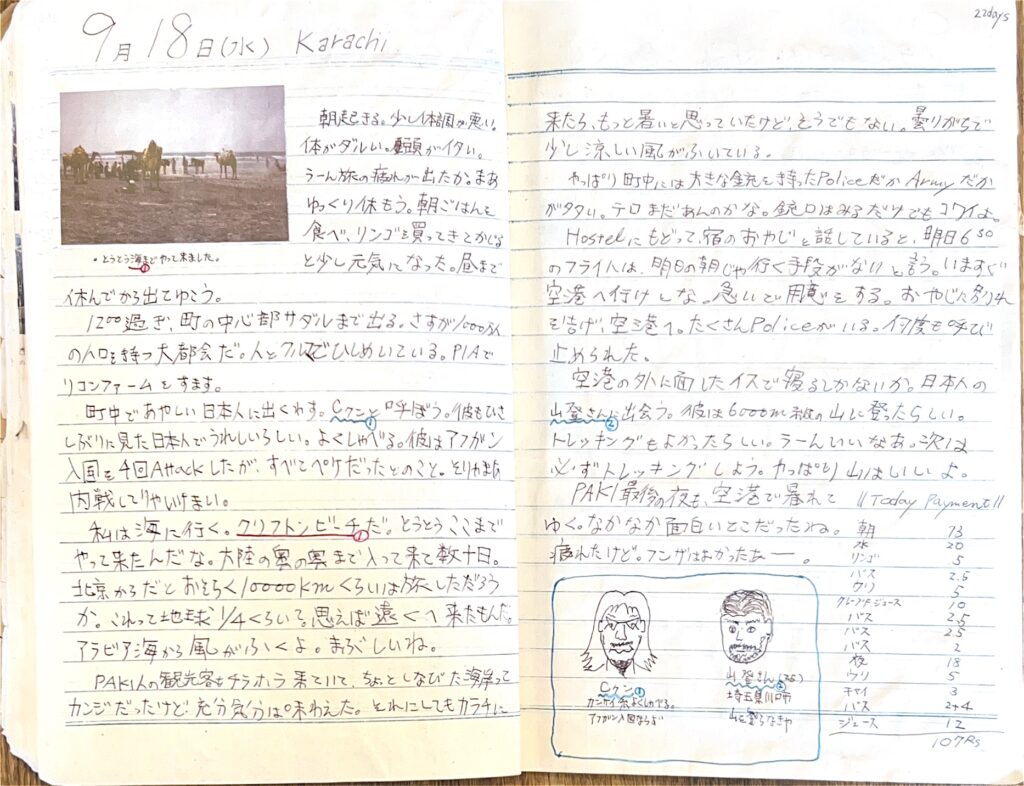 9月18日(水) Karachi
22days
朝起きる。少し体調が悪い。
体がダルい。頭がイタい。
うーん旅の疲れが出たか。まあ
ゆっくり休もう。朝ごはんを
食べ、リンゴを買ってきてかじる
と少し元気になった。昼まで
・とうとう海までやって来ました。
休んでから出てゆこう。
1200過ぎ、町の中心部サダルまで出る。さすが1000万人
の人口を持つ大都会だ。人とクルマでひしめいている。PIAで
リコンファームをすます。
町中であやしい日本人に出くわす。Cクンと呼ぼう。彼もひさ
①
しぶりに見た日本人でうれしいらしい。よくしゃべる。彼はアフガン
入国を4回Attackしたが、すべてペケだったとのこと。そりゃまあ
内戦してりゃいけまい。
私は海に行く。クリフトンビーチだ。とうとうここまで
やって来たんだな。大陸の奥の奥まで入って来て数十日。
北京からだとおそらく10000kmくらいは旅しただろう
か。これって地球1/4くらい?思えば遠くへ来たもんだ。
アラビア海から風がふくよ。まぶしいね。
PAKI人の観光客もチラホラ来ていて、ちょっとしなびた海岸って
カンジだったけど充分気分は味わえた。それにしてもカラチに
来たら、もっと暑いと思っていたけど、そうでもない。曇りがちで
少し涼しい風がふいている。
やっぱり町中には大きな銃を持ったPoliceだかArmyだか
がタタい。テロまだあんのかな。銃口はみるだけでもコワイよ。
Hostelにもどって、宿のおやじと話していると、明日630
のフライトは、明日の朝じゃ行く手段がないと言う。いますぐ
空港へ行けしな。急いで用意をする。おやじに別れ
を告げ、空港へ。たくさんPoliceがいる。何度も呼び
止められた。
空港の外に面したイスで寝るしかないか。日本人の
山登さんに出会う。彼は6000m級の山に登ったらしい。
②
トレッキングもよかったらしい。うーんいいなあ。次は
必ずトレッキングしよう。やっぱり山はいいよ。
PAKI最後の夜も、空港で暮れて
ゆく。なかなか面白いとこだったね。
疲れたけど。フンザはよかったあー。
\\Today Payment!!
朝 73
水 20
リンゴ 5
バス 2.5
ウリ 5
グレープ.ジュース 10
バス 2.5
バス 2.5
バス 2
夜 18
ウリ 5
チャイ 3
バス 2+4
ジュース 12
107Rs
Cクン①
アフガン入国ならず
山登さん ②
埼玉県川口市